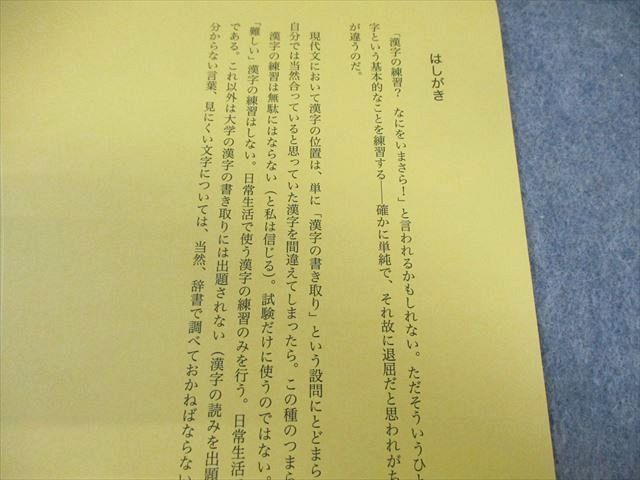 はしがき
「漢字の練習？　なにをいまさら！」と言われるかもしれない。ただそういうひと
字という基本的なことを練習する――確かに単純で、それ故に退屈だと思われがち
が違うのだ。
現代文において漢字の位置は、単に「漢字の書き取り」という設問にとどまら
自分では当然合っていると思っていた漢字を間違えてしまったら。この種のつまら
漢字の練習は無駄にはならない（と私は信じる）。試験だけに使うのではない。
「難しい」漢字の練習はしない。日常生活で使う漢字の練習のみを行う。日常生活
である。これ以外は大学の漢字の書き取りには出題されない（漢字の読みを出題
分からない言葉、見にくい文字については、当然、辞書で調べておかねばならない